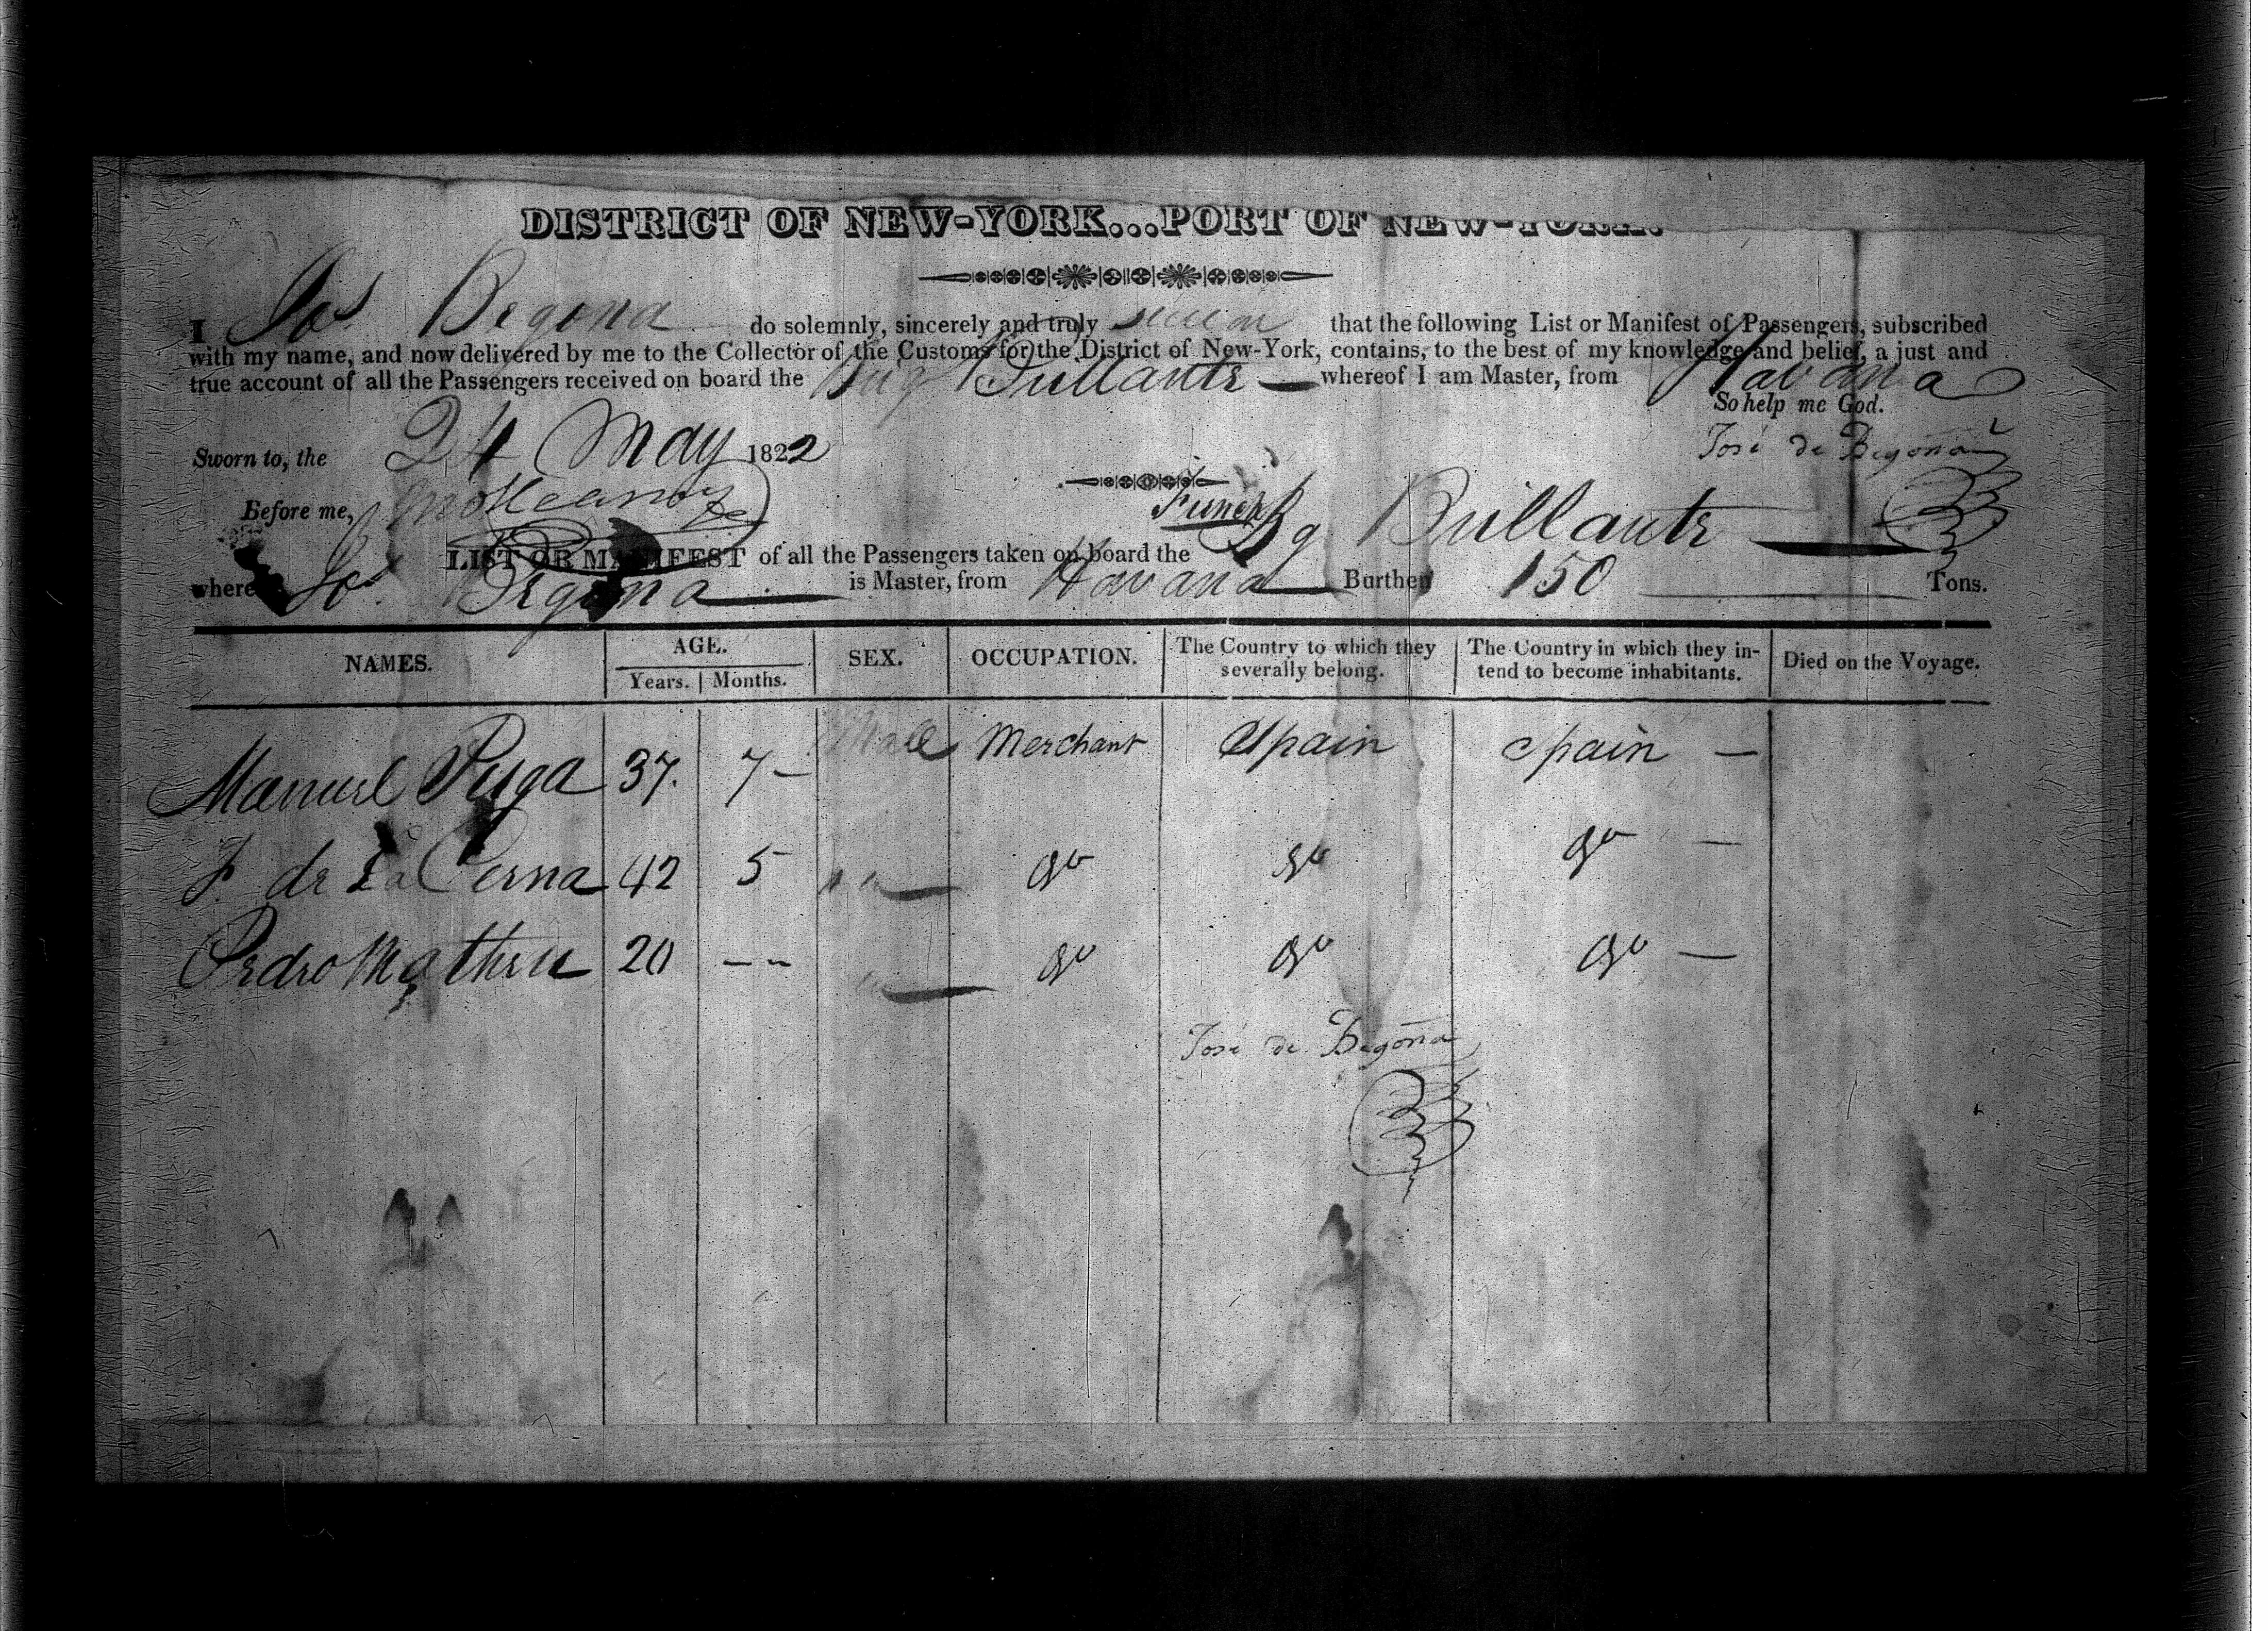 DISTRICT OF NEW-YORK...PORT OF NEW-YORK.
I Jos. Begona do solemnly, sincerely and truly swear that the following List or Manifest of Passengers, subscribed
with my name, and now delivered by me to the Collector of the Customs for the District of New-York, contains, to the best of my knowledge and belief, a just and
true account of all the Passengers received on board the Brig Brillante whereof I am Master, from Havana
So help me God.
Sworn to, the 24 May 1822
José de Begoña
Before me,
French Bg Brillante
LIST OR MANIFEST of all the Passengers taken on board the
where Jos. Begona is Master, from Havana Burthen 150 Tons.
NAMES. AGE. SEX. OCCUPATION. The Country to which they severally belong. The Country in which they intend to become inhabitants. Died on the Voyage.
Years. Months.
Manuel Puga 37. 7 – Male Merchant Spain Spain —
J. de La Cerna 42 5 do do do —
Pedro Matheu 20 – – do do do —
José de Begoña